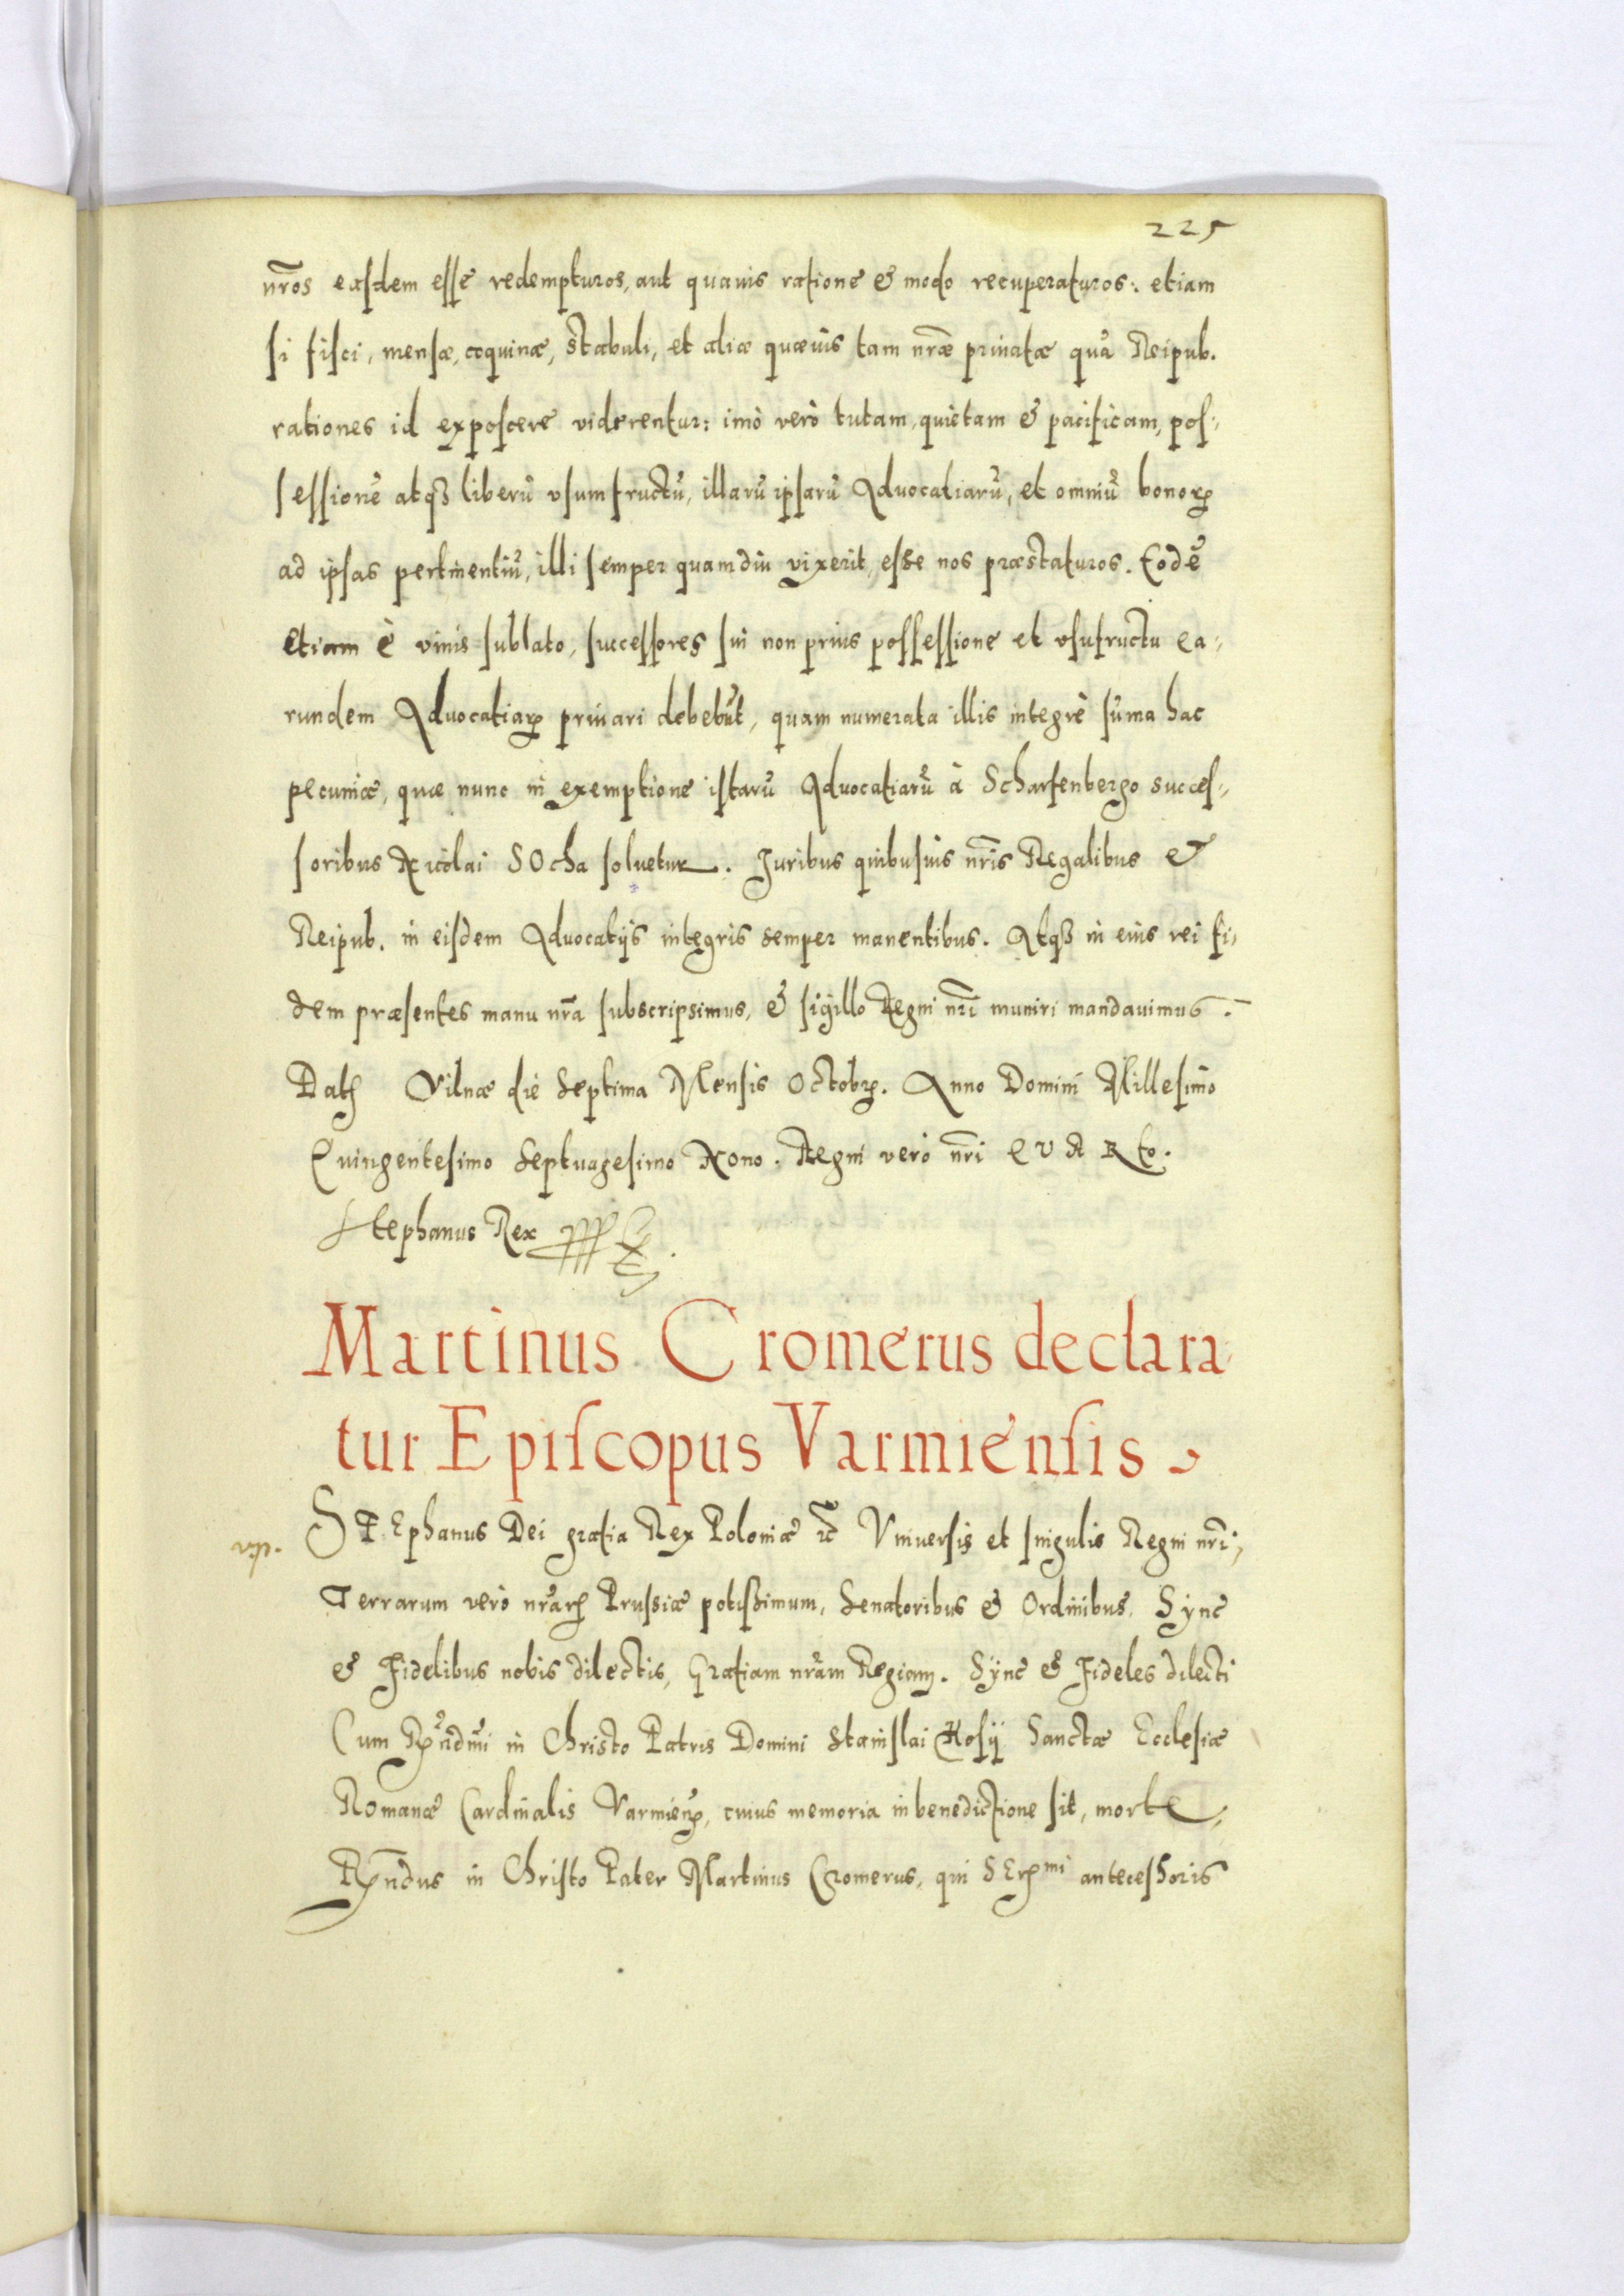 225
nr̃os easdem esse redempturos, aut quauis ratione & modo recuperaturos: etiam
si fisci, mensæ, coquinæ, stabuli, et aliæ quæuis tam nr̃æ priuatæ quā Reipub.
rationes id exposcere viderentur: imò verò tutam, quietam & pacificam, pos-
sessionē atqꝫ liberū vsumfructū, illarū ipsarū Aduocatiarū, et omniū bonoꝝ
ad ipsas pertinentiū, illi semper quamdiu vixerit, esse nos præstaturos. Eodē
etiam è viuis sublato, successores sui non prius possessione et vsufructu ea-
rundem Aduocatiaꝝ priuari debebūt, quam numerata illis integrè sūma hac
pecuniæ, quæ nunc in exemptione istarū Aduocatiarū à Scharfenbergo succes-
soribus Nicolai SOcha soluetur. Juribus quibusuis nr̃is Regalibus &
Reipub. in eisdem Aduocatijs integris semper manentibus. Atqꝫ in eius rei fi-
dem præsentes manu nr̃a subscripsimus, & sigillo Regni nr̃i muniri mandauimus.
Datꝭ Vilnæ die Septima Mensis Octobrꝭ. Anno Domini Millesimo
Quingentesimo Septuagesimo Nono. Regni verò nr̃i QVARto.
Stephanus Rex
Martinus Cromerus declara-
tur Epiſcopus Varmienſis
STEphanus Dei gratia Rex Poloniæ ꝛc̃ Vniuersis et singulis Regni nr̃i,
Terrarum verò nr̃arꝭ Prussiæ potissimum, Senatoribus & Ordinibus, Syncꝭ
& Fidelibus nobis dilectis, Gratiam nr̃am Regiam. Syncꝭ & Fideles dilecti
Cum Rñdmi in Christo Patris Domini Stanislai Hosij Sanctæ Ecclesiæ
Romanæ Cardinalis Varmienꝭ, cuius memoria in benedictione sit, morte,
Rñdus in Christo Pater Martinus Cromerus, qui SErꝭmi antecessoris